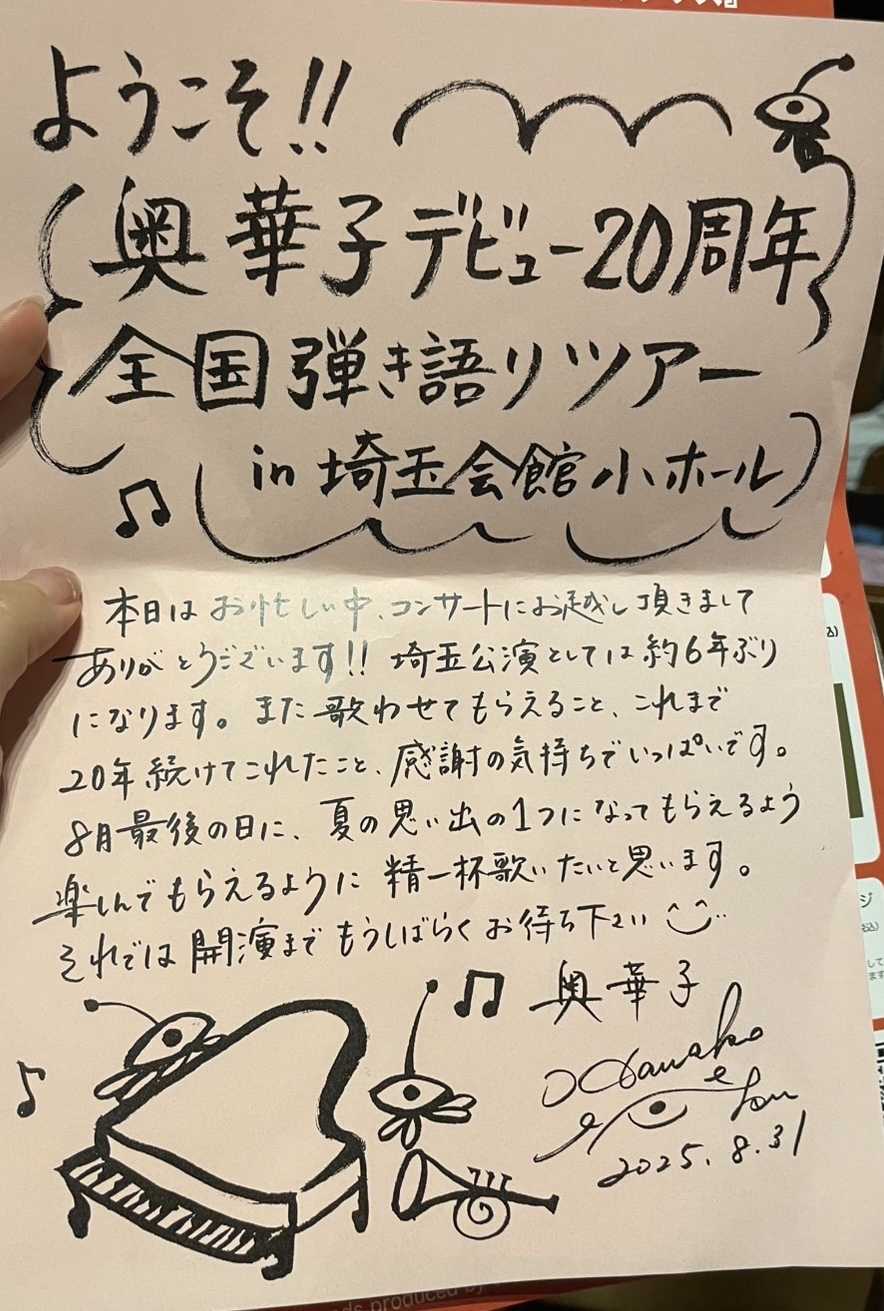 ようこそ!!
奥華子デビュー20周年
全国弾き語りツアー
in 埼玉会館小ホール
本日はお忙しい中、コンサートにお越し頂きまして
ありがとうございます!! 埼玉公演としては約6年ぶり
になります。また歌わせてもらえること、これまで
20年続けてこれたこと、感謝の気持ちでいっぱいです。
8月最後の日に、夏の思い出の1つになってもらえるよう
楽しんでもらえるように精一杯歌いたいと思います。
それでは開演までもうしばらくお待ち下さい
奥華子
2025.8.31
produced by